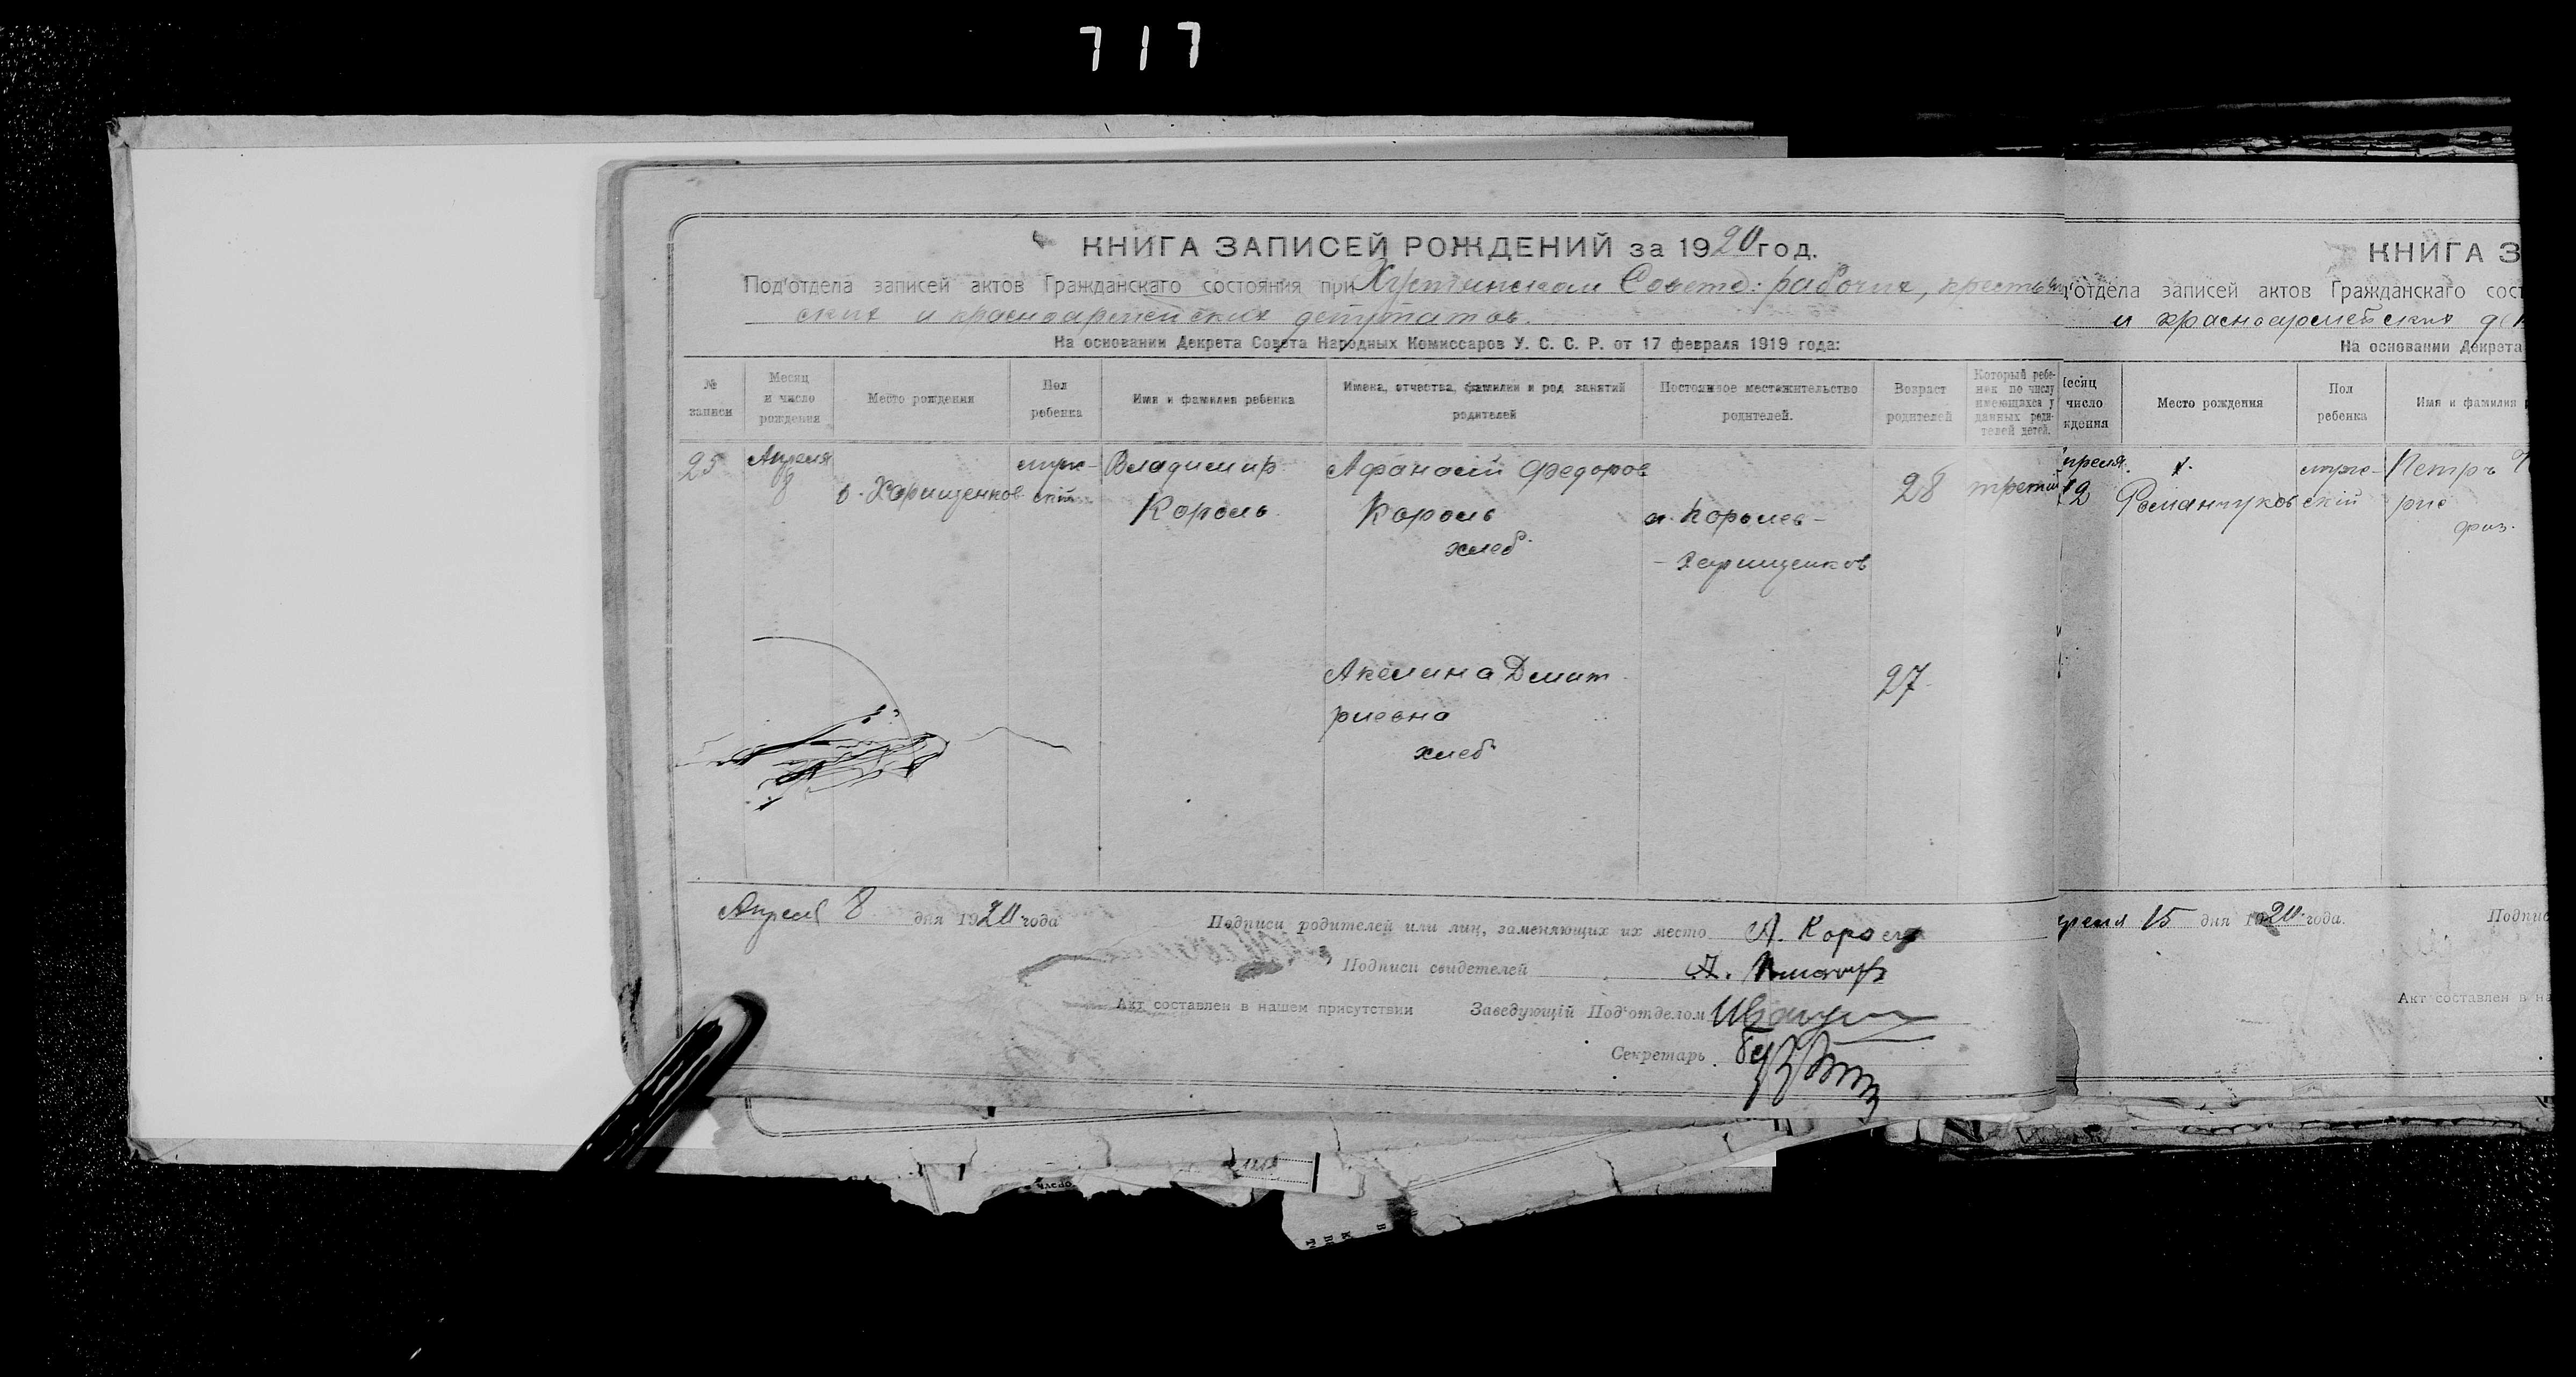 717
КНИГА ЗАПИСЕЙ РОЖДЕНИЙ за 1920 год.
Под'отдела записей актов Гражданскаго состояния при Совете: рабочих, крестьян
ских и красноармейских депутатов.
На основании Декрета Совета Народных Комиссаров У. С. С. Р. от 17 февраля 1919 года:
№ записи
Месяц и число рождения
Место рождения
Пол ребенка
Имя и фамилия ребенка
Имена, отчества, фамилии и род занятий родителей
Постоянное местожительство родителей.
Возраст родителей
Который ребе-
нек по числу
имеющихся у
данных роди-
телей детей.
25
Апреля
8
х. Харищенков
муж-
скій
Владимир
Король
Афанасій Федоров
Король
хлеб.
х. Королев-
-Харищенков
28
третий
Акелина Дмит
риевна
хлеб
27
Апреля 8 дня 1920 года
Подписи родителей или лиц, заменяющих их место А. Король
Подписи свидетелей
Акт составлен в нашем присутствии Заведующій Под'отделом
Секретарь
КНИГА З
'отдела записей актов Гражданскаго сост
и красноармейских де
На основании Декрета
есяц
число
ждения
Место рождения
Пол
ребенка
Имя и фамилия
преля
12
х.
Романчуков
муже-
скій
Петръ
реля 15 дня 1920 года.
Подпис
Акт составлен в на